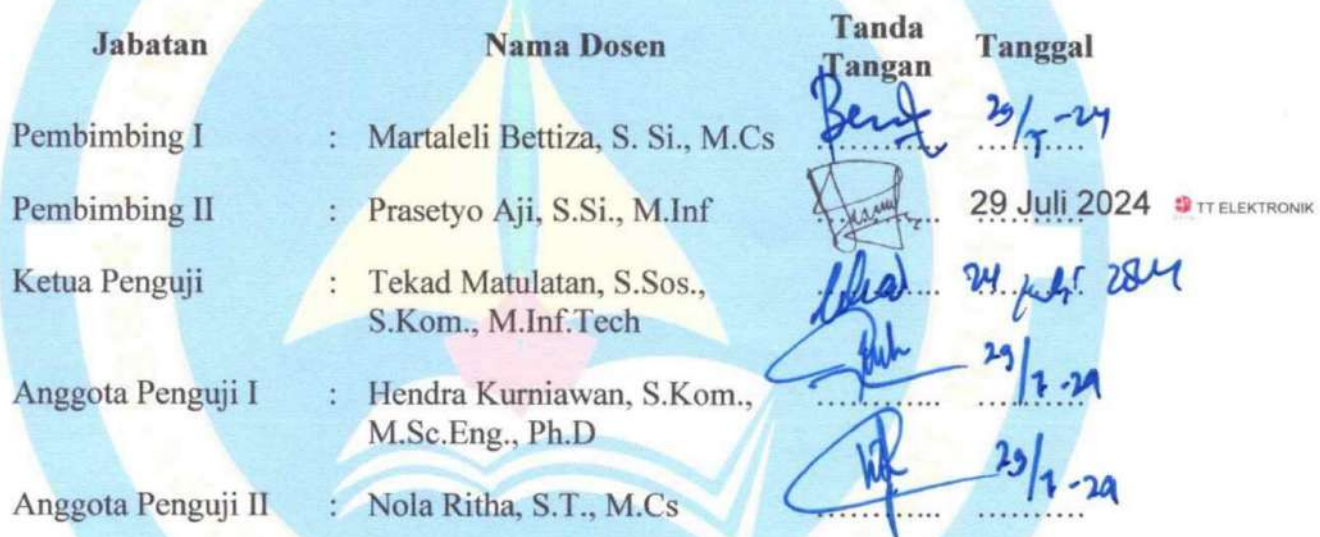 Jabatan Nama Dosen Tanda Tangan Tanggal
Pembimbing I : Martaleli Bettiza, S. Si., M.Cs ............ 29/7-24
Pembimbing II : Prasetyo Aji, S.Si., M.Inf ............ 29 Juli 2024 TT ELEKTRONIK
Ketua Penguji : Tekad Matulatan, S.Sos., ............
S.Kom., M.Inf.Tech
Anggota Penguji I : Hendra Kurniawan, S.Kom., ............ 29/7-24
M.Sc.Eng., Ph.D
Anggota Penguji II : Nola Ritha, S.T., M.Cs ............ 29/7-24